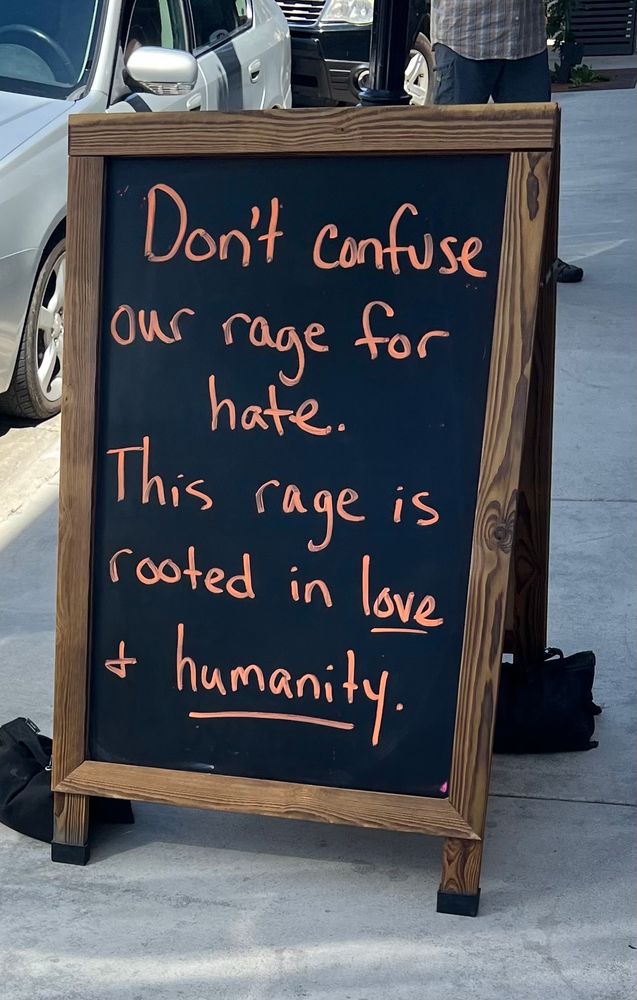 Don't confuse
our rage for
hate.
This rage is
rooted in love
+ humanity.